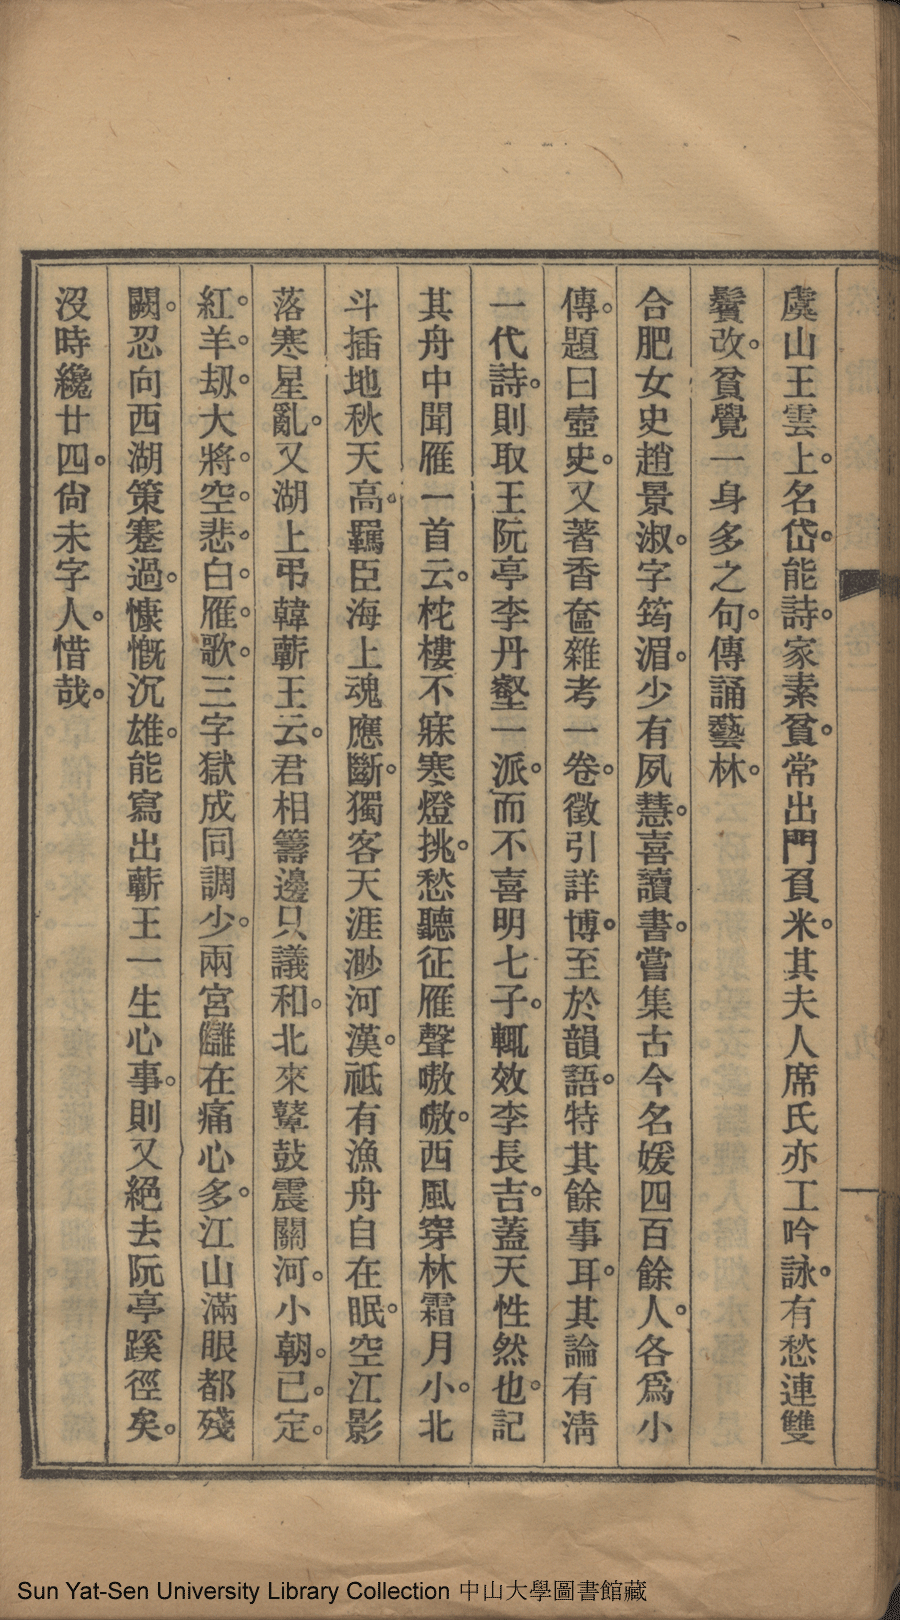 虞山王雲上。名岱。能詩。家素貧。常出門負米。其夫人席氏亦工吟詠。有愁連雙
鬢改。貧覺一身多之句。傳誦藝林。
合肥女史趙景淑。字筠湄。少有夙慧。喜讀書。嘗集古今名媛四百餘人。各爲小
傳。題曰壼史。又著香奩雜考一卷。徵引詳博。至於韻語。特其餘事耳。其論有淸
一代詩。則取王阮亭李丹壑二派。而不喜明七子。輒效李長吉。蓋天性然也。記
其舟中聞雁一首云。柁樓不寐寒燈挑。愁聽征雁聲嗷嗷。西風穿林霜月小。北
斗插地秋天高。羈臣海上魂應斷。獨客天涯渺河漢。祗有漁舟自在眠。空江影
落寒星亂。又湖上弔韓蘄王云。君相籌邊只議和。北來鼙鼓震關河。小朝。已。定。
紅。羊。刼。大將。空。悲。白。雁。歌。三字獄成同調少。兩宮讎在痛心多。江山滿眼都殘
闕。忍向西湖策蹇過。慷慨沉雄。能寫出蘄王一生心事。則又絕去阮亭蹊徑矣。
沒時纔廿四。尙未字人。惜哉。
Sun Yat-Sen University Library Collection 中山大學圖書館藏